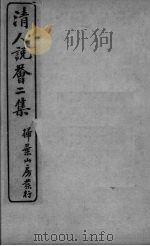 清人說薈二集
掃葉山房發行